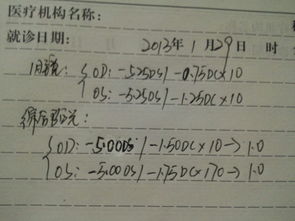 医疗机构名称:
就诊日期: 2013年 1月29日 时
旧镜: OD: -5.25DS/-0.75DC×10
OS: -5.25DS/-1.25DC×10
OD: -5.00DS/-1.50DC×10→1.0
OS: -5.00DS/-1.75DC×170→1.0